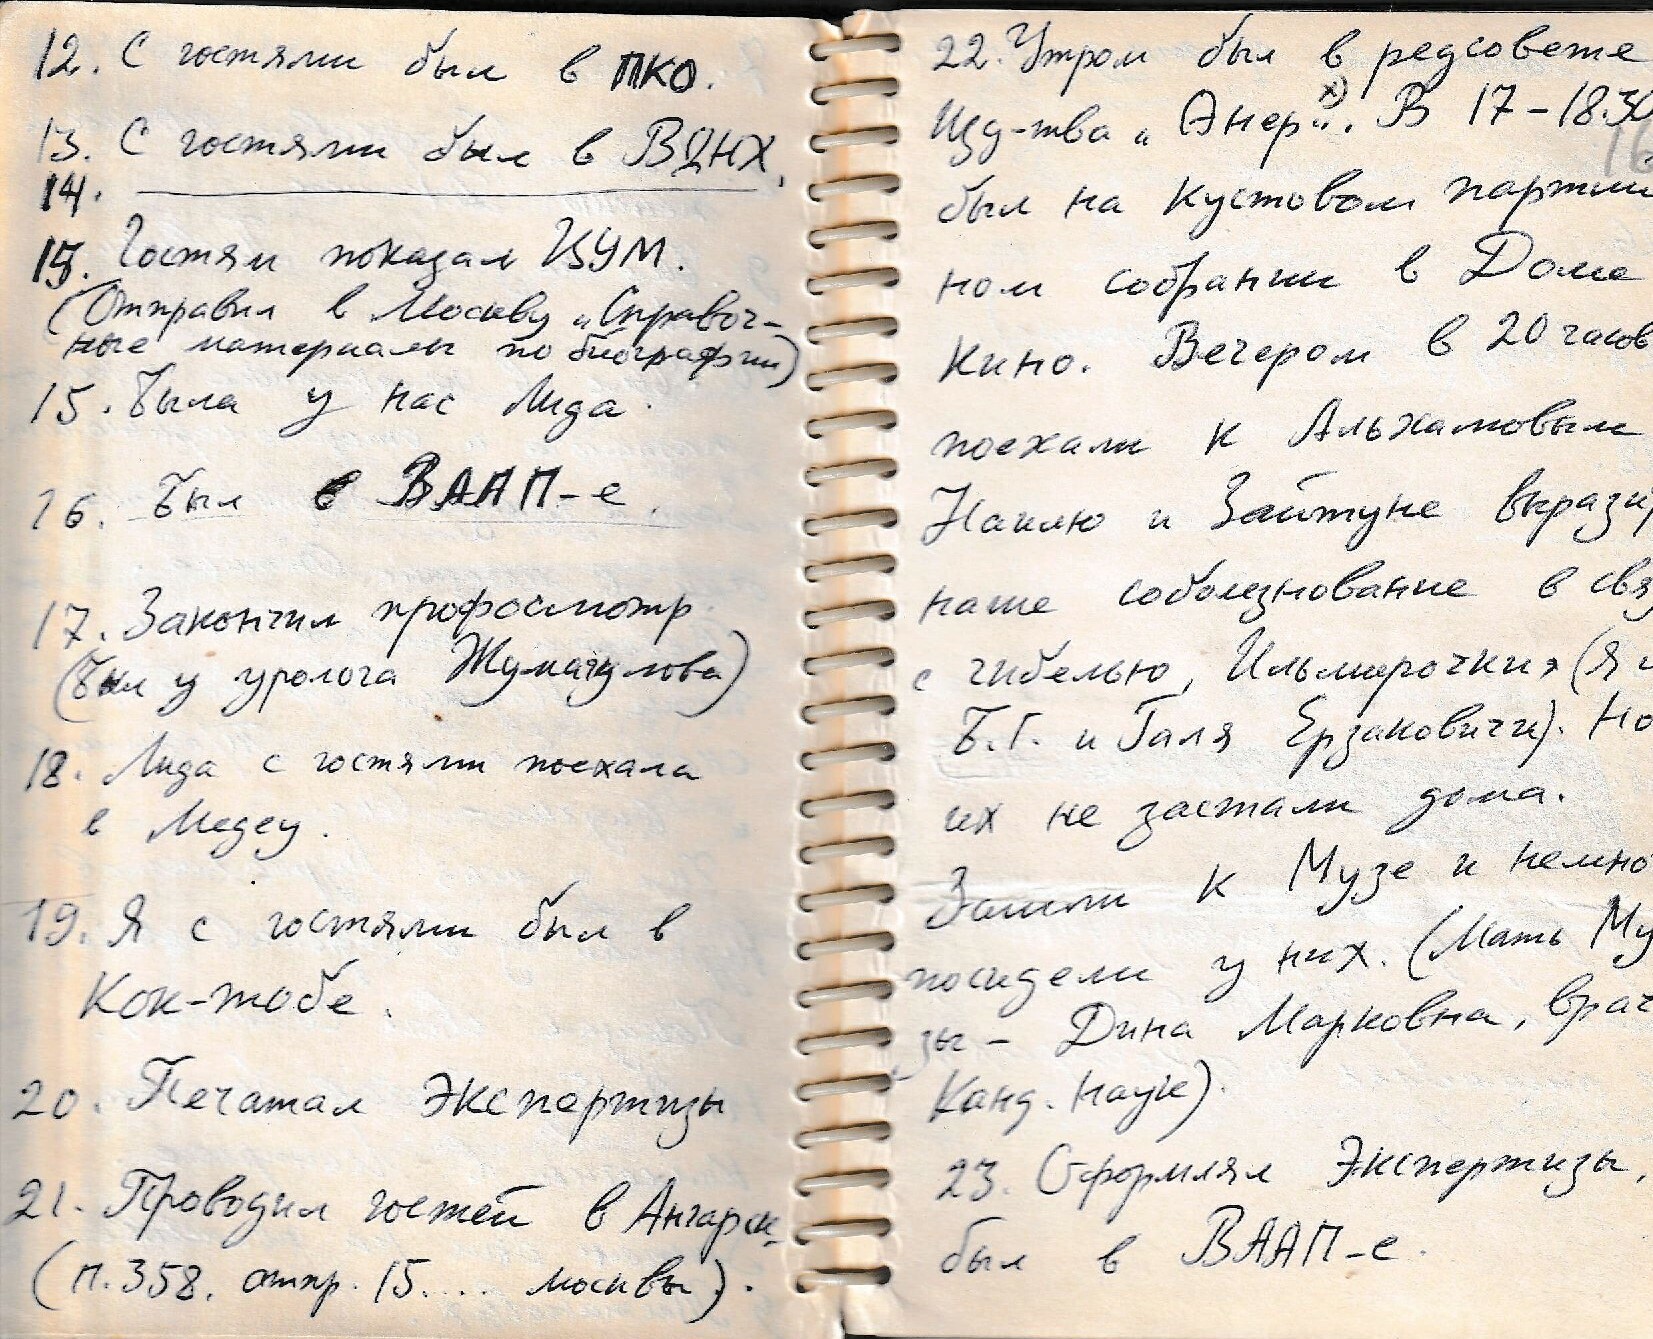 12. С гостями был в ПКО.
13. С гостями был в ВДНХ.
14.
15. Гостям показал ЦУМ.
(Отправил в Москву „Справоч-
ные материалы по биографии)
15. Была у нас Лида.
16. Был в ВААП-е.
17. Закончил профосмотр
(Был у уролога Жумагулова)
18. Лида с гостями поехала
в Медеу.
19. Я с гостями был в
Кок-тобе.
20. Печатал Экспертизы
21. Проводил гостей в Ангарск.
(п. 358. отпр. 15.... москвы).
22. Утром был в редсовете
Изд-тва „Өнер“ х). В 17-18.30
16
был на кустовом партий
ном собрании в Доме
Кино. Вечером в 20 часов
поехали к Альхамовым
Наилю и Зайтуне вырази
наше соболезнование в свя
с гибелью, Ильмирочки, (я и
Б.Г. и Галя Ерзаковичи). Но
их не застали дома.
Зашли к Музе и немно
посидели у них. (Мать Му
зы - Дина Марковна, врач
Канд. наук).
23. Оформлял Экспертизы,
был в ВААП-е.